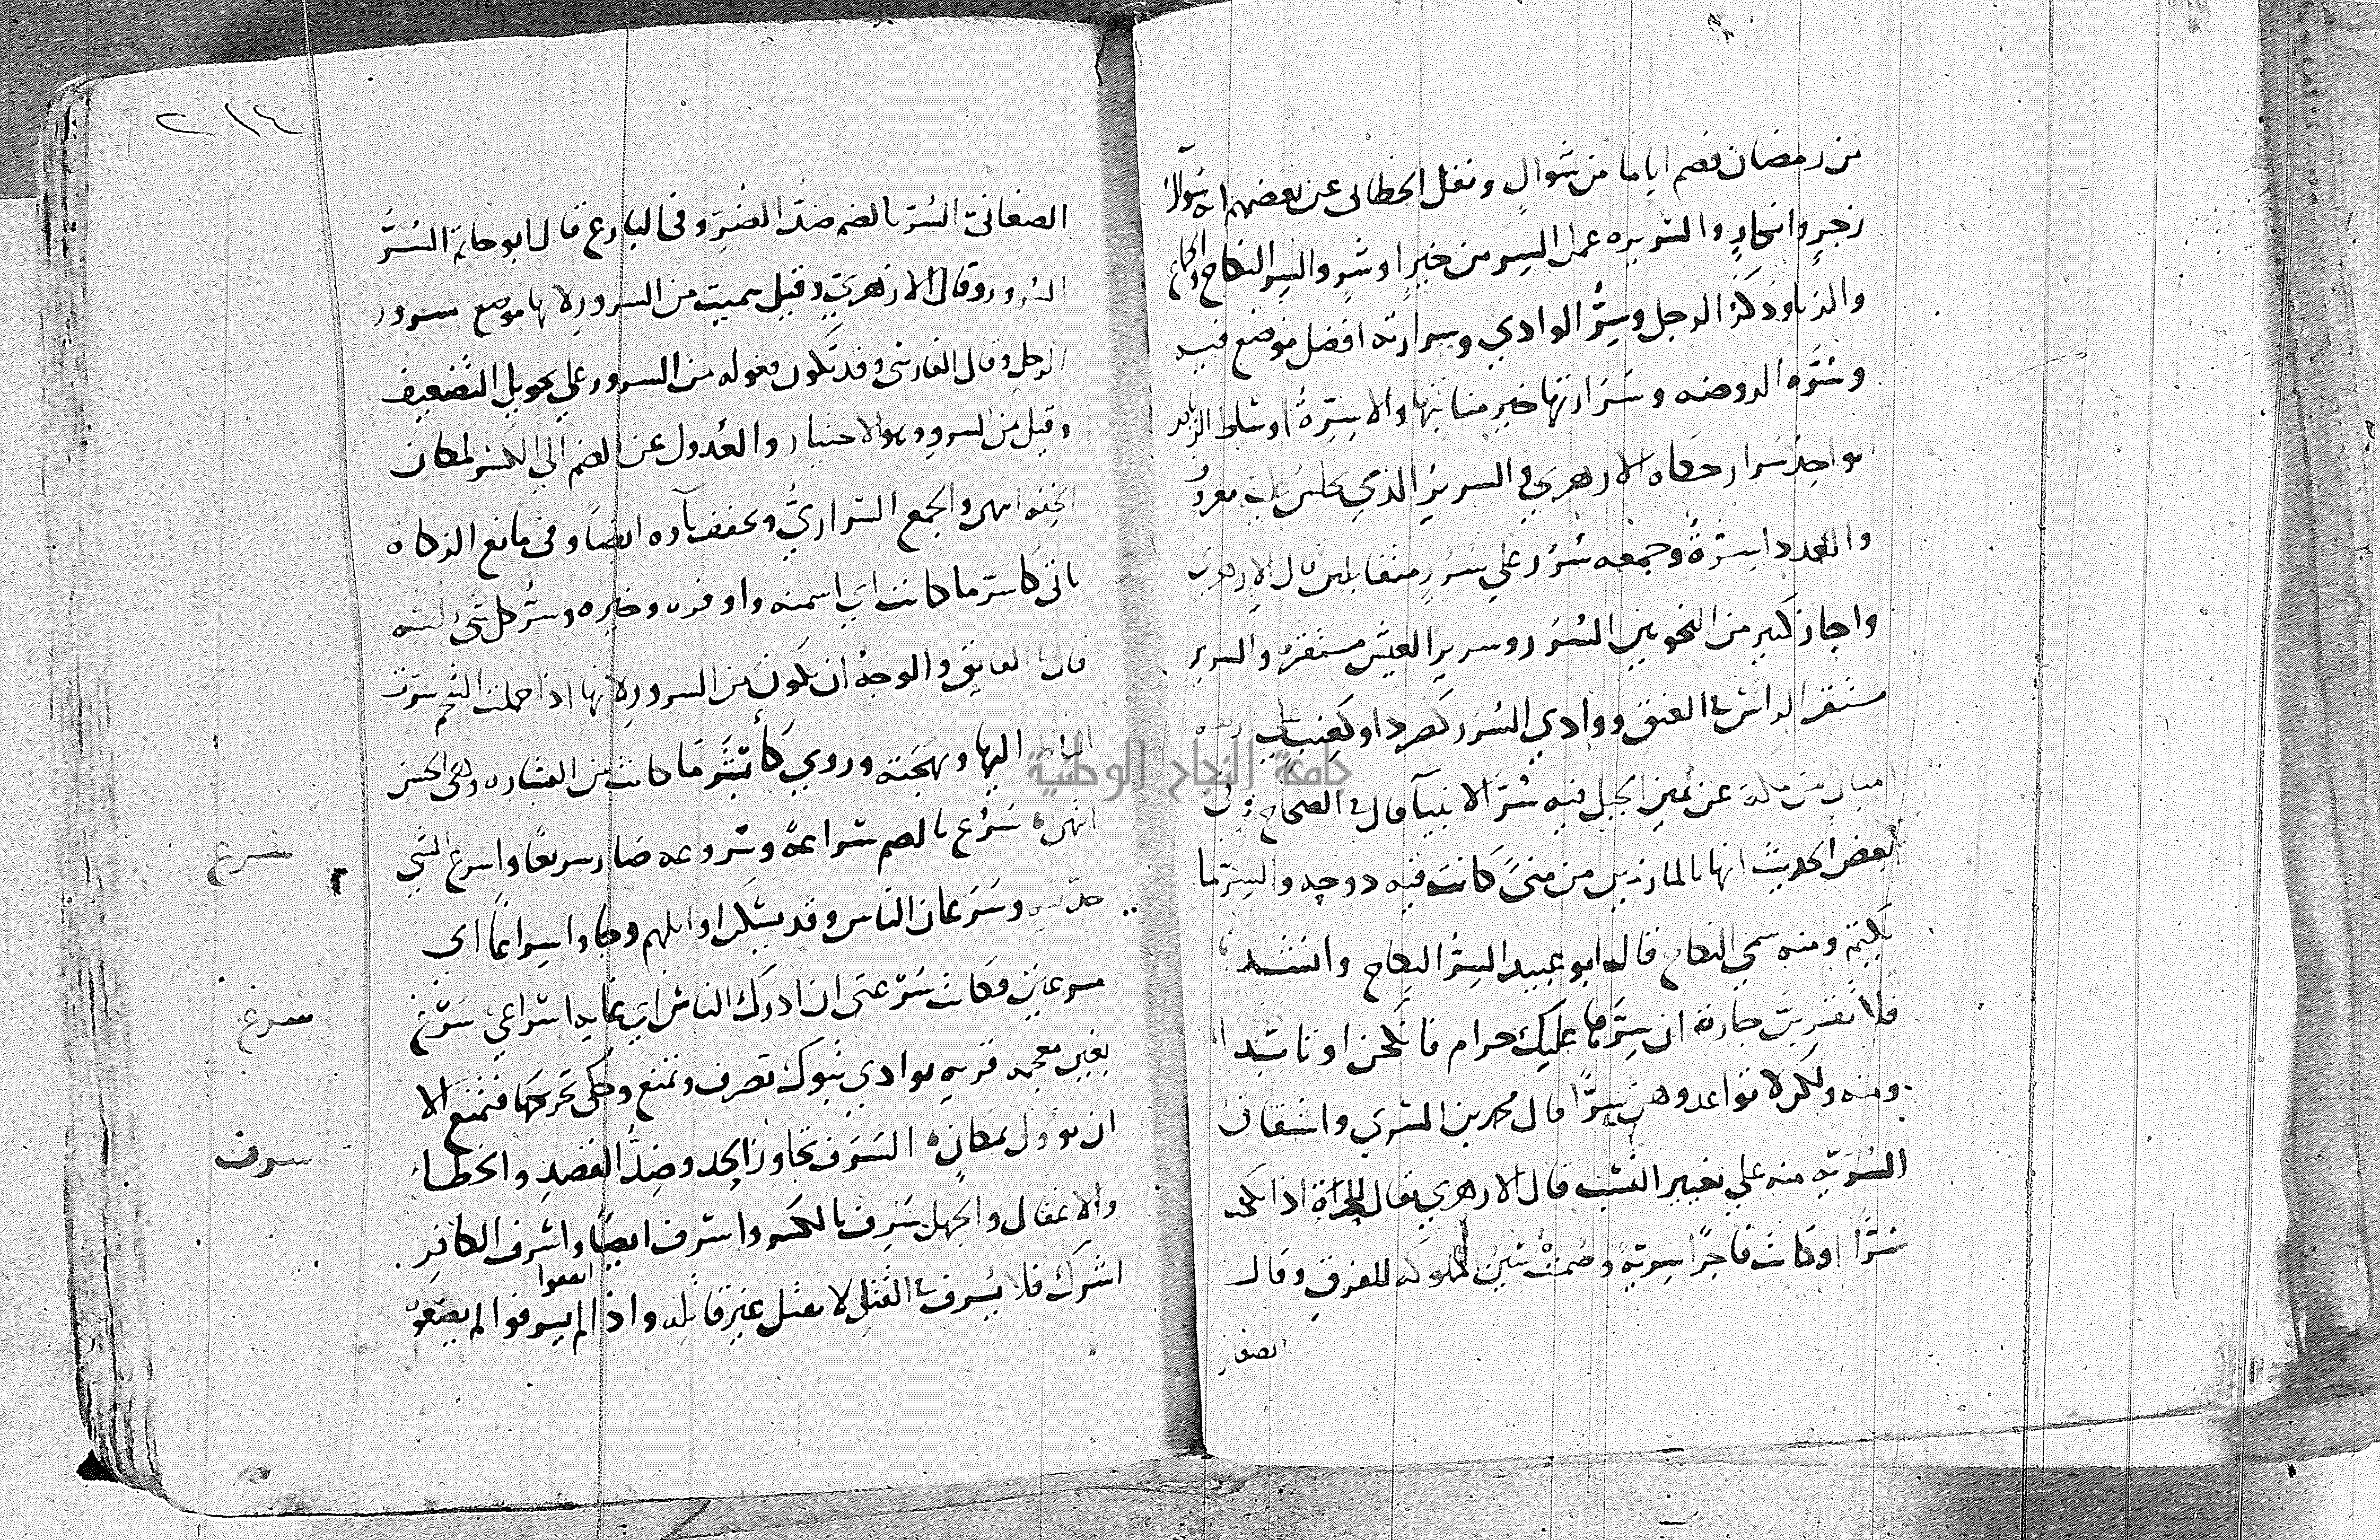 من رمضان فصم اياما من شوال ونقل الخطابي عن بعضهم انه سؤال
زجرٍ وانكارٍ والسريره عمل السر من خيرٍ او شرٍ والسر النكاح والجماع
والزنا وذكرُ الرجل وسِرُّ الوادي وسرارته افضل موضع فيه
وسُرَّة الروضه وسَرَارتها خير منابتها والاسِرّةُ اوساط الرياض
واحد سَرار حكاه الازهري السريرُ الذي يجلس عليه معروف
والعدد اسِرّةٌ وجمعه سُرُر علي سُرُرٍ متقابلين قال الازهري
واجاز كثير من النحويين السُرَر وسرير العيش مستقره والسرير
مستقر الراس في العنق ووادي السُرَر كصرد او كعنب علي اربعه
اميال من مكة عن يمين الجبل فيه سُرّ الانبيآ قال في الصحاح وفي
بعض الحديث انها بالمازمين من منىً كانت فيه دوحه والسِرّ ما
يكتم ومنه سمي النكاح قاله ابو عبيد السِرُّ النِكاح وانشد
فلا تقربنّ جارة ان سِرَّها عليك حرام فانكحن او تابدا
ومنه ولكن لا تواعدوهن سِرًّا قال محمد بن السري واشتقاق
السُرّيّه منه علي تغيير النسَب قال الازهري يقال للمراة اذا نكحت
سرًّا او كانت فاجرًا سِريّةٌ وضُمتْ سين المملوكه للفرق وقال
الصغا
٢١٤
الصغانيّ السُرّ بالضم ضدّ الضُرِ وفي البارع قال ابو حاتم السُرُّ
السُرور وقال الازهريّ وقيل سميت من السرورِ لانها موضع سرور
الرجل وقال الفارسي وقد تكون فعوله من السرور علي تحويل التضعيف
وقيل من السرو وهو الاختيار والعُدول عن الضم الي الكسر لمكان
الخفه انتهى والجمع السراريُّ وتخفف يآوه ايضاً وفي مانع الزكاة
تاتي كاسرّ ما كانت اي اسمنه واوفره وخيره وسُرّ كل شئ لُبّه
قال في الفايق والوجهُ ان يكون من السرورِ لانها اذا حملت الشحم سرّت
الناظر اليها وبهجته وروي كأبْشَر ما كانت من البشاره وهي الحسن
انتهى سَرُع بالضم سراعةً وسُروعه صَار سريعًا واسرع الشي
حدّثه وسَرَعان الناس وقد يسكن اوايلهم وجاوا سِراعًا اي
سرعانين فكانت سُرْعتي ان ادرك الناس اي غايه اسراعي سَرْغ
بغين معجمه قريه بوادي تبوك تصرف وتمنع وحكى تحريكها فتمنع الا
ان تؤول بمكانٍ السَرَف تجاوز الحد وضِدُّ القصدِ والخطا
والاغفال والجهل سَرِف بالكسر واسرف ايضًا واسرف الكافر
اشرك فلا يُسرف في القتلِ لا يقتل غير قاتِله واذا انفقوا لم يسرفوا لم يضعوه
سرع
سرغ
سرف
جامعة النجاح الوطنية